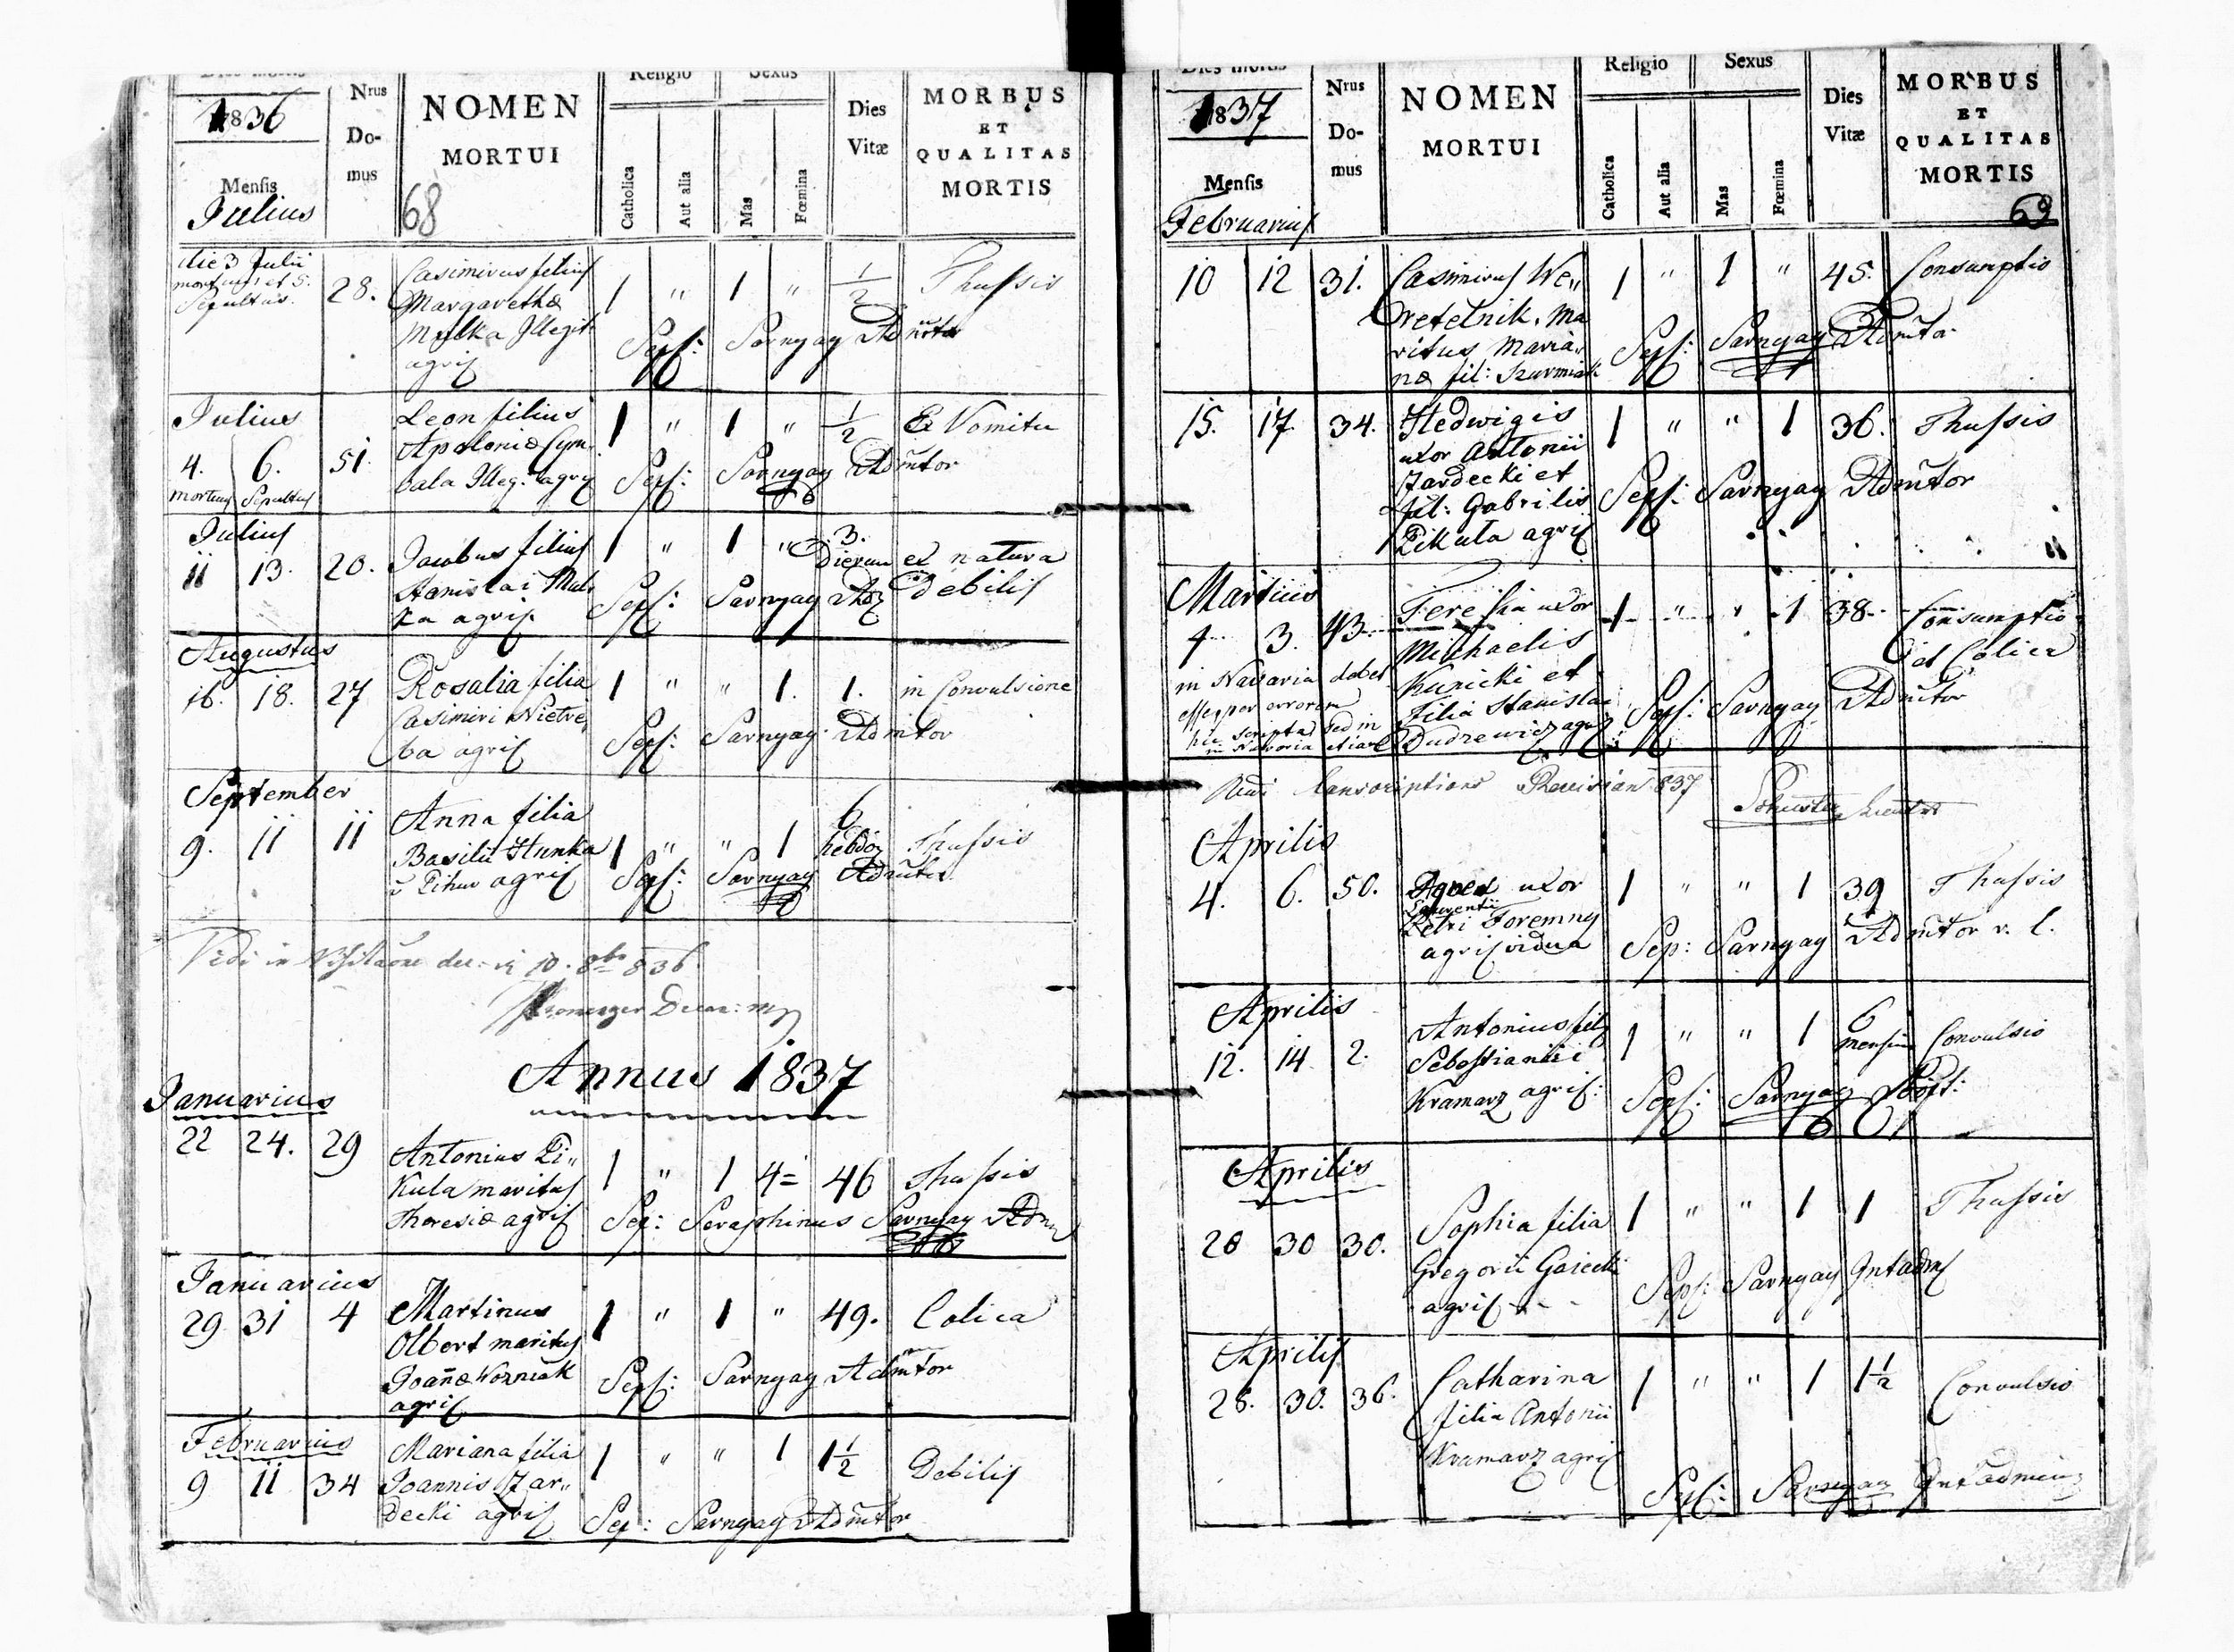 1836
Nrus
Do-
mus
NOMEN
MORTUI
Religio
Sexus
Catholica
Aut alia
Mas
Fœmina
Dies
Vitæ
MORBUS
ET
QUALITAS
MORTIS
Mensis
Julius
68
die 3 Julii
mortuus et 5.
Sepultus.
28. Casimirus filius 1 " 1 " 1/2 Thussis
Margarethæ
Illegit:
agric
Sep: Sarnyay Admtor
Julius
4. 6. 51. Leon filius 1 " 1 " 1/2 Ex Vomitu
Apoloniæ Cym
bala Illeg: agric
mortuus Sepultus
Sep: Sarnyay Admtor
Julius
11 13. 20. Jacobus filius 1 " 1 " 3. Dierum ex natura
Stanislai Mul
ka agric.
debilis
Sep: Sarnyay
Augustus
16. 18. 27 Rosalia filia 1 " " 1. 1. in Convulsione
Casimiri Nietrze
ba agric
Sep: Sarnyay Admtor
September
9. 11 11 Anna filia 1 " " 1 6 hebdo Thussis
Basilii Hunka
agric
Sep: Sarnyay Admtor
Vidi in Visitaõne dec: 10. 8br 836
Annus 1837
Januarius
22 24. 29 Antonius Pi"
kula maritus 1 " 1 46 Thussis
Theresiæ agric
Sep: Seraphinus Sarnyay Adm
Januarius
29 31 4 Martinus 1 " 1 " 49. Colica
Olbert maritus
Joañæ Wozniak
agric
Sep: Sarnyay Admtor
Februarius
9 11 34 Mariana filia 1 " " 1 1 1/2 Debilis
Joannis Zar"
decki agric
Sep: Sarnyay Admtor
1837
Nrus
Do-
mus
NOMEN
MORTUI
Religio
Sexus
Catholica
Aut alia
Mas
Fœmina
Dies
Vitæ
MORBUS
ET
QUALITAS
MORTIS
Mensis
Februarius
69
10 12 31. Casimirus We" 1 " 1 " 45. Consumptio
retelnik. Ma
ritus Maria"
næ fil: Szurmiak
Sep: Sarnyay Admtor
15. 17. 34. Hedwigis 1 " " 1 36. Thussis
uxor Antonii
Zardecki et
fil: Gabrilis
Pikula agric
Sep: Sarnyay Admtor
Martius
4 3. 43 Teresia uxor 1 " " 1 38 Consumptio
Michaelis
et Colica
Kunicki et
filia Stanislai
Dudzewicz agric
in Navaria debet
esse per errorem
hic scripta sed in
Navaria
Sep: Sarnyay Admtor
Conscriptions Revision 837
Aprilis
4. 6. 50. Agnes uxor 1 " " 1 39 Thussis
Laurentii
Petri Foremny
agric vidua
Sep: Sarnyay Admtor r. l.
Aprilis
12. 14 2. Antonius fil 1 " " 1 6 mensium Convulsio
Sebastiani
Kramarz agric:
Sep: Sarnyay
Aprilis
28 30 30. Sophia filia 1 " " 1 1 Thussis
Gregorii
agric
Sep: Sarnyay
Aprilis
28. 30. 36. Catharina 1 " " 1 1 1/2 Convulsio
filia Antonii
Kramarz agric
Sep: Sarnyay